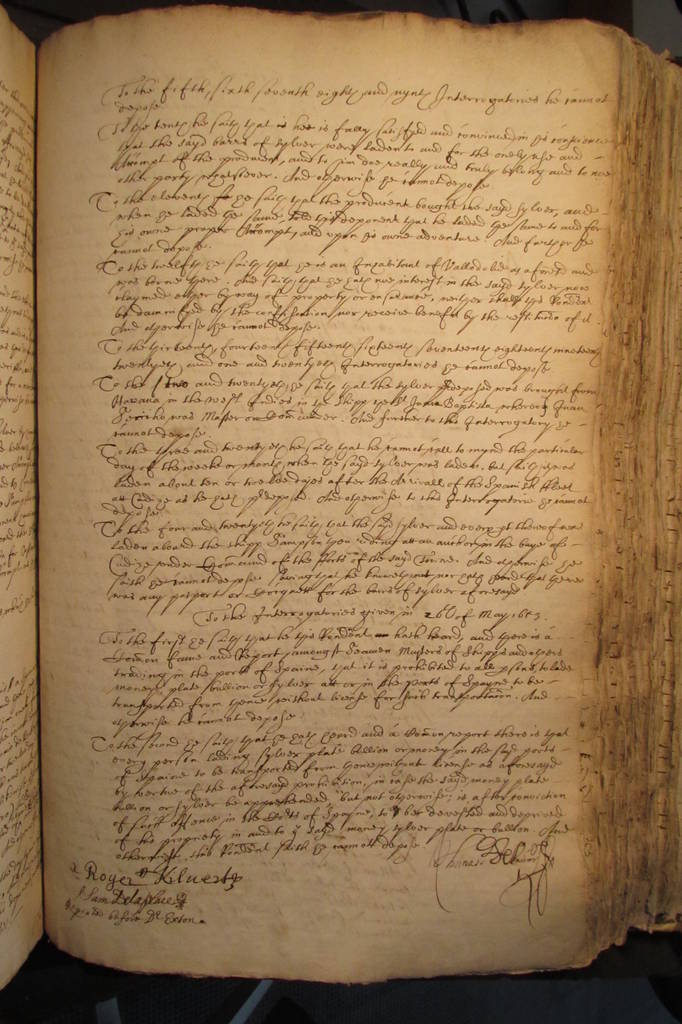 To the fifth, sixth seventh eighth and nynth Interrogatories he cannot
depose.
To the tenth he saith that hee is fully satisfyed and convinced in his conscience
that the sayd barrs of sylver were laden to and for the onely use and
Accompt of the producent, and to him doe really and truly belong and to noe
other party whatsoever. And otherwise he cannot depose.
To the eleventh he saith that the producent bought the sayd sylver, and
when he laded the same told this deponent that he laded the same to and for
his owne proper Accompt, and upon his owne adventure And further he
cannot depose.
To the twelfth he saith that he is an Inhabitant of Valladolid as aforesd and
was borne there. And saith that he hath noe interest in the sayd sylver now
claymed either by way of property or ensurance, neither shall this Rendent
be damnified by the confiscation nor receive benefit by the restitution of it.
And otherwise he cannot depose.
To the thirteenth, fourteenth fifteenth sixteenth seventeenth eighteenth nineteenth
twentyeth, and one and twentyeth Interrogatories he cannot depose
To the two and twentyeth he saith that the sylver predeposed was brought from
Havana in the West Indies in the shipp the Juan Baptista, whereof Juan
was Master or Comander. And further to this Interrogatory he
cannot depose.
To the three and twentyeth he saith that he cannot call to mynd the particular
day of the weeke or month when the sayd sylver was laden. but saith it was
laden about ten or twelve dayes after the Arrivall of the Spanish fleet
att Cadize as he hath predeposed. And otherwise to this Interrogatorie he cannot
depose.
To the four and twentyeth he saith that the sayd sylver and every pt thereof was
laden aboard the shipp Sampson then riding att an anchor in the baye of
Cadize under Comand of the forts of the sayd Towne. And otherwise he
saith he cannot depose. Saving that he knoweth not nor hath heard that there
was any pasport or Cocquett for the barrs of sylver aforesayd
To the Interrogatories given in 26th of May 1653.
To the first he saith that he this Rendent hath heard, and there is a
Comon fame and Report amongst Seamen Masters of Shipps and others
trading in the ports of Spaine, that it is prohibited to all psons to lade
moneys plate bullion or sylver att or in the ports of Spayne to be
transported from thence without license for such transportation. And
otherwise he cannot depose.
To the second he saith that he hath heard and a Comon report there is that
every person lading sylver plate bullion or money in the sayd ports
of Spaine to be transported from thence without license as aforesayd
by vertue of the aforesayd prohibition, in case the sayd money plate
bullion or sylver be apprehended but not otherwise, is after conviction
of such offence in the Courts of Spayne, to be devested and deprived
of his propriety in and to the sayd money sylver plate or bullion. And
otherwise this Rendent saith he cannot depose
Roger Kilvert
Sam Delaplace
Repeated before Dr Exton.